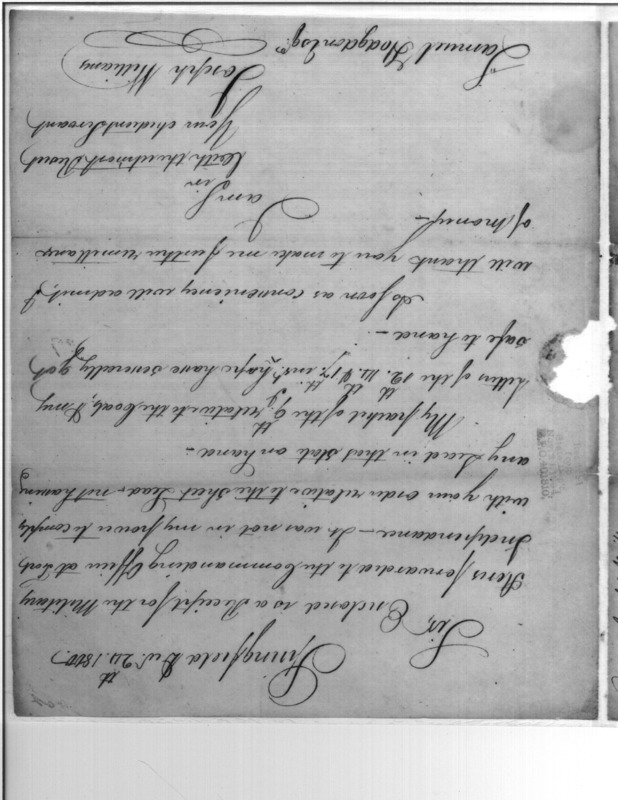 Springfield Decr. 24th. 1800.
Sir,
Enclosed is a Receipt for the Military
Stores forwarded to the Commanding Officer at Fort
Independance — It was not in my power to comply
with your order relative to the sheet Lead, not having
any Lead in that state on hand —
My packet of the 9th, relative to the boats, & my
letters of the 12. 14th. & 17th. inst. I hope have severally got
safe to hand —
As soon as conveniency will admit, I
will thank you to make me a further remittance
of money —
I am Sir
with the utmost Respect
Your obedient Servant
Joseph Williams
Samuel Hodgdon Esqr.